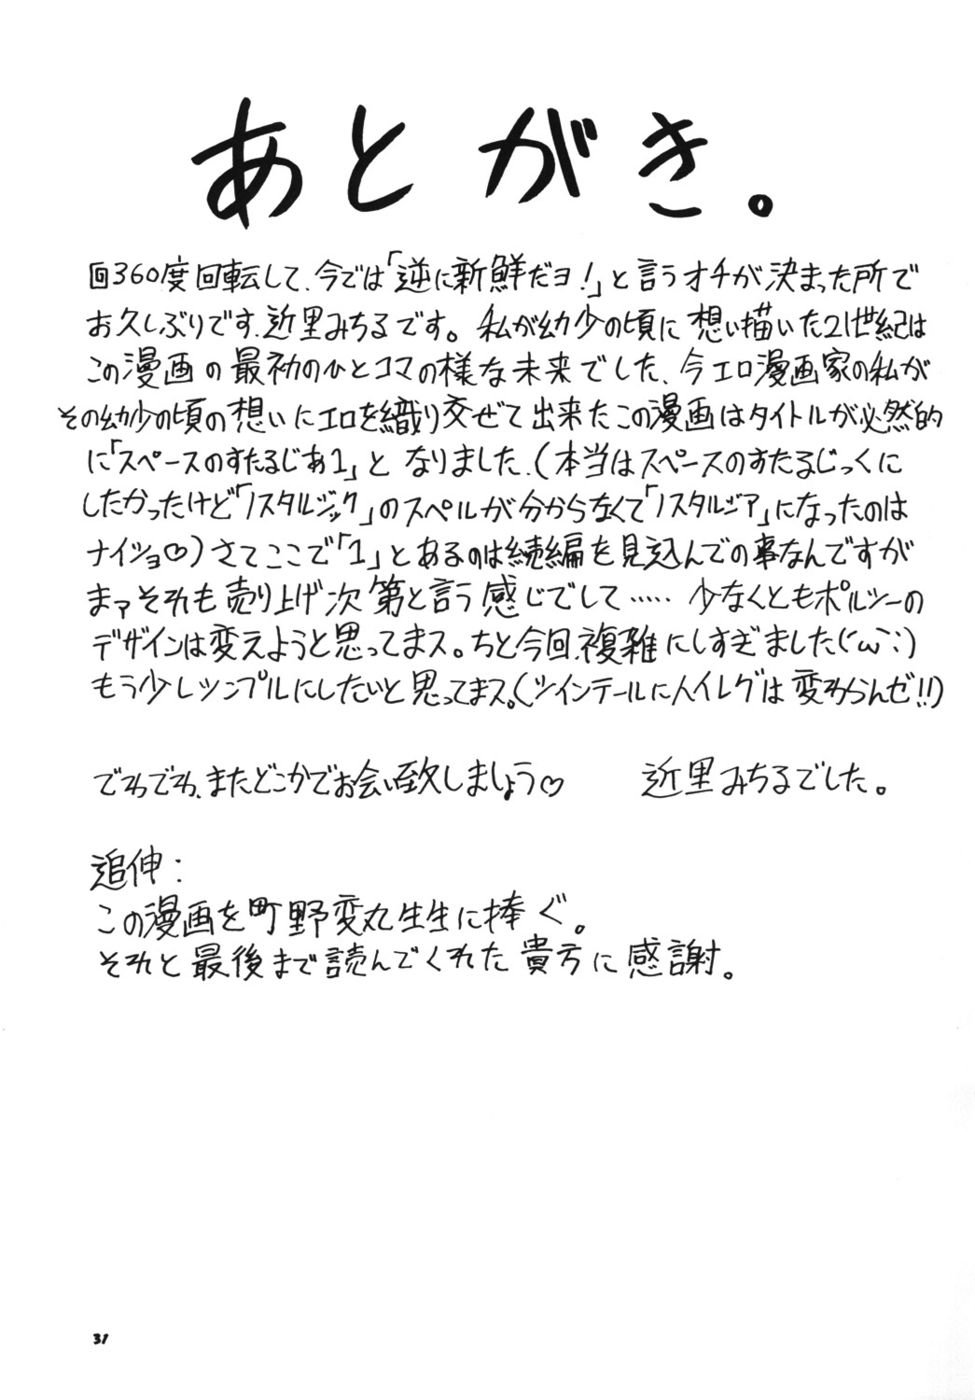 あとがき。
回360度回転して、今では「逆に新鮮だヨ!」と言うオチが決まった所で
お久しぶりです、近里みちるです。私が幼少の頃に想い描いた21世紀は
この漫画の最初のひとコマの様な未来でした、今エロ漫画家の私が
その幼少の頃の想いにエロを織り交ぜて出来たこの漫画はタイトルが必然的
に「スペースのすたるじあ1」となりました、(本当はスペースのすたるじっくに
したかったけど「ノスタルジック」のスペルが分からなくて「ノスタルジア」になったのは
ナイショ♡)さてここで「1」とあるのは続編を見込んでの事なんですが
まァそれも売り上げ次第と言う感じでして…… 少なくともポルシーの
デザインは変えようと思ってまス。ちと今回、複雑にしすぎました(´ω`;)
もう少しシンプルにしたいと思ってまス。(ツインテールにハイレグは変わらんゼ!!)
でわでわ、またどこかでお会い致しましょう♡ 近里みちるでした。
追伸:
この漫画を町野変丸生生に捧ぐ。
それと最後まで読んでくれた貴方に感謝。
31